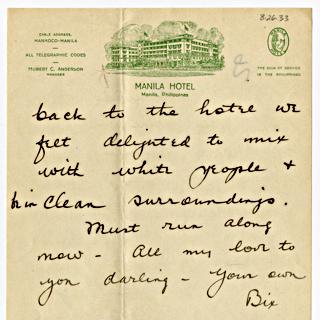 8-26-33
CABLE ADDRESS,
MANHOCO-MANILA
ALL TELEGRAPHIC CODES
HUBERT C. ANDERSON
MANAGER
THE SIGN OF SERVICE
IN THE PHILIPPINES
MANILA HOTEL
Manila, Philippines
back to the hotel we
felt delighted to mix
with white people &
be in clean surroundings.
Must run along
now - All my love to
you darling - Your own
Bix